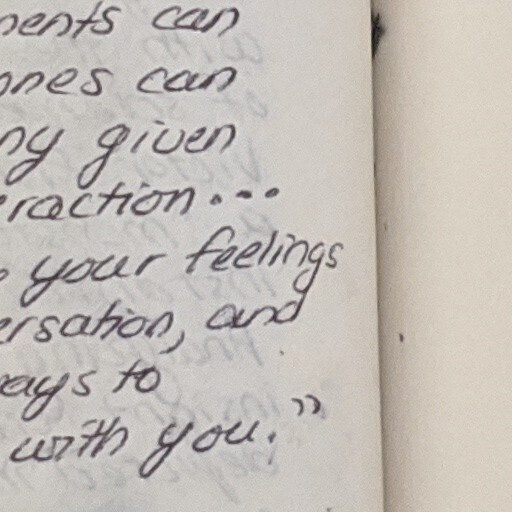 ments can
ones can
ny given
eraction...
your feelings
ersation, and
ays to
with you."